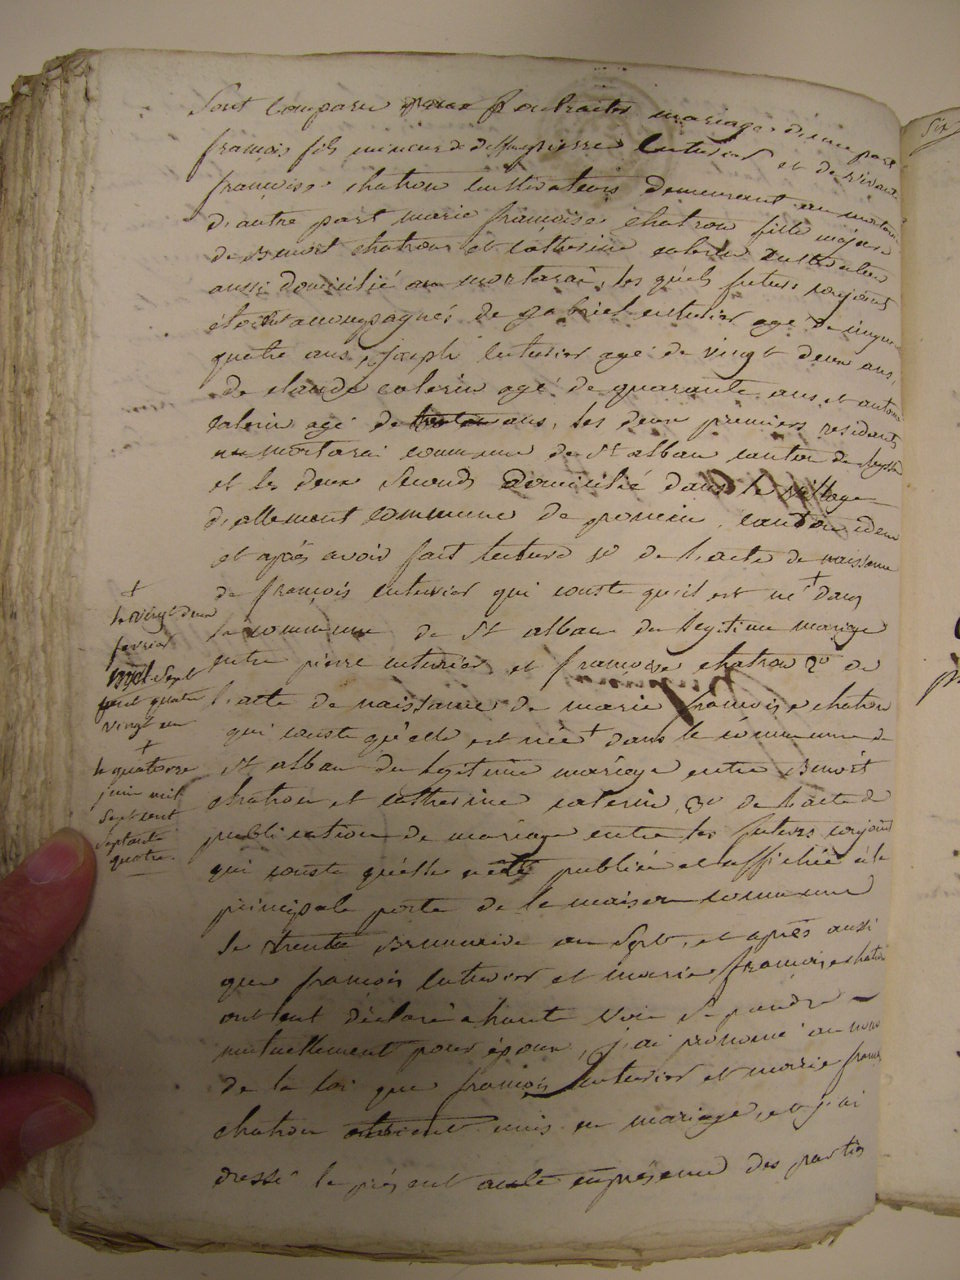 Sont comparu pour contracter mariage d'une part
françois fils mineur de deffunt pierre luturier et de vivante
françoise chatron cultivateurs demeurant au mortarai
d'autre part marie françoise chatron fille majeure
de Benoit chatron et catherine calerin cultivateur
aussi domicilié au mortarai, les quels futurs conjoints
étoint accompagnés de gabriel luturier agé de cinquante
quatre ans, joseph luturier agé de vingt deux ans,
de claude calerin agé de quarante ans et antoine
calerin agé de ans, les deux premiers residents
au mortarai commune de St alban canton de
et les deux seconds domicilié dans le village
d'allement commune de poncin, canton idem
et après avoir fait lecture 1o de l'acte de naissance
de françois luturier qui conste qu'il est né + dans
la commune de St alban du legitime mariage
entre pierre luturier et françoise chatron 2o de
l'acte de naissance de marie françoise chatron
qui conste qu'elle est née + dans la commune de
St alban du legitime mariage entre Benoit
chatron et catherine calerin 3o de l'acte de
publication de mariage entre les futurs conjoint
qui conste qu'elle a été publiée et affichée à la
principale porte de la maison commune
le trente Brumaire an Sept, et après aussi
que françois luturier et marie françoise chatron
ont eut déclaré a haute voix se prendre
mutuellement pour époux, j'ai prononcé au nom
de la loi que françois luturier et marie françoise
chatron étoient unis en mariage, et j'ai
dressé le présent acte en présence des partis
+
le vingt deux
fevrier
mil sept
cent quatre
vingt un
+
le quatorze
juin mil
sept cent
septante
quatre.